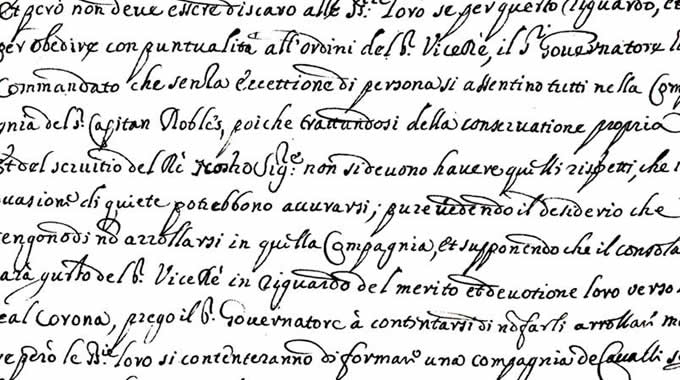 et però non deve essere discaro alle SS.rie loro se per questo riguardo, et
per obedire con puntualità all'ordini del S.r Viceré, il S.r Governatore h
Commandato che senza eccettione di persona si assentino tutti nella Comp
gnia del S.r Capitan Robles, poiche trattandosi della conservatione propria
et del servitio del Ré Nostro Sig.re non si devono havere quelli rispetti, che i
uasione di quiete potrebbono avvrarsi; pure vedendo il desiderio che
tengono di nō arrollarsi in quella Compagnia, et supponendo che il consola
arà gusto del S.r Viceré in riguardo del merito et devotione loro verso l
eal Corona, prego il S.r Governatore à contentarsi di nō farli arrollare m
ve però le SS.rie loro si contenteranno di formare una compagnia de Cavalli